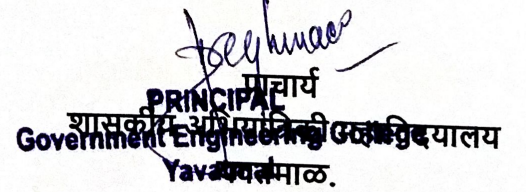 प्राचार्य
PRINCIPAL
शासकीय अभियांत्रिकी महाविद्यालय
Government Engineering College
Yavatmal
यवतमाळ.